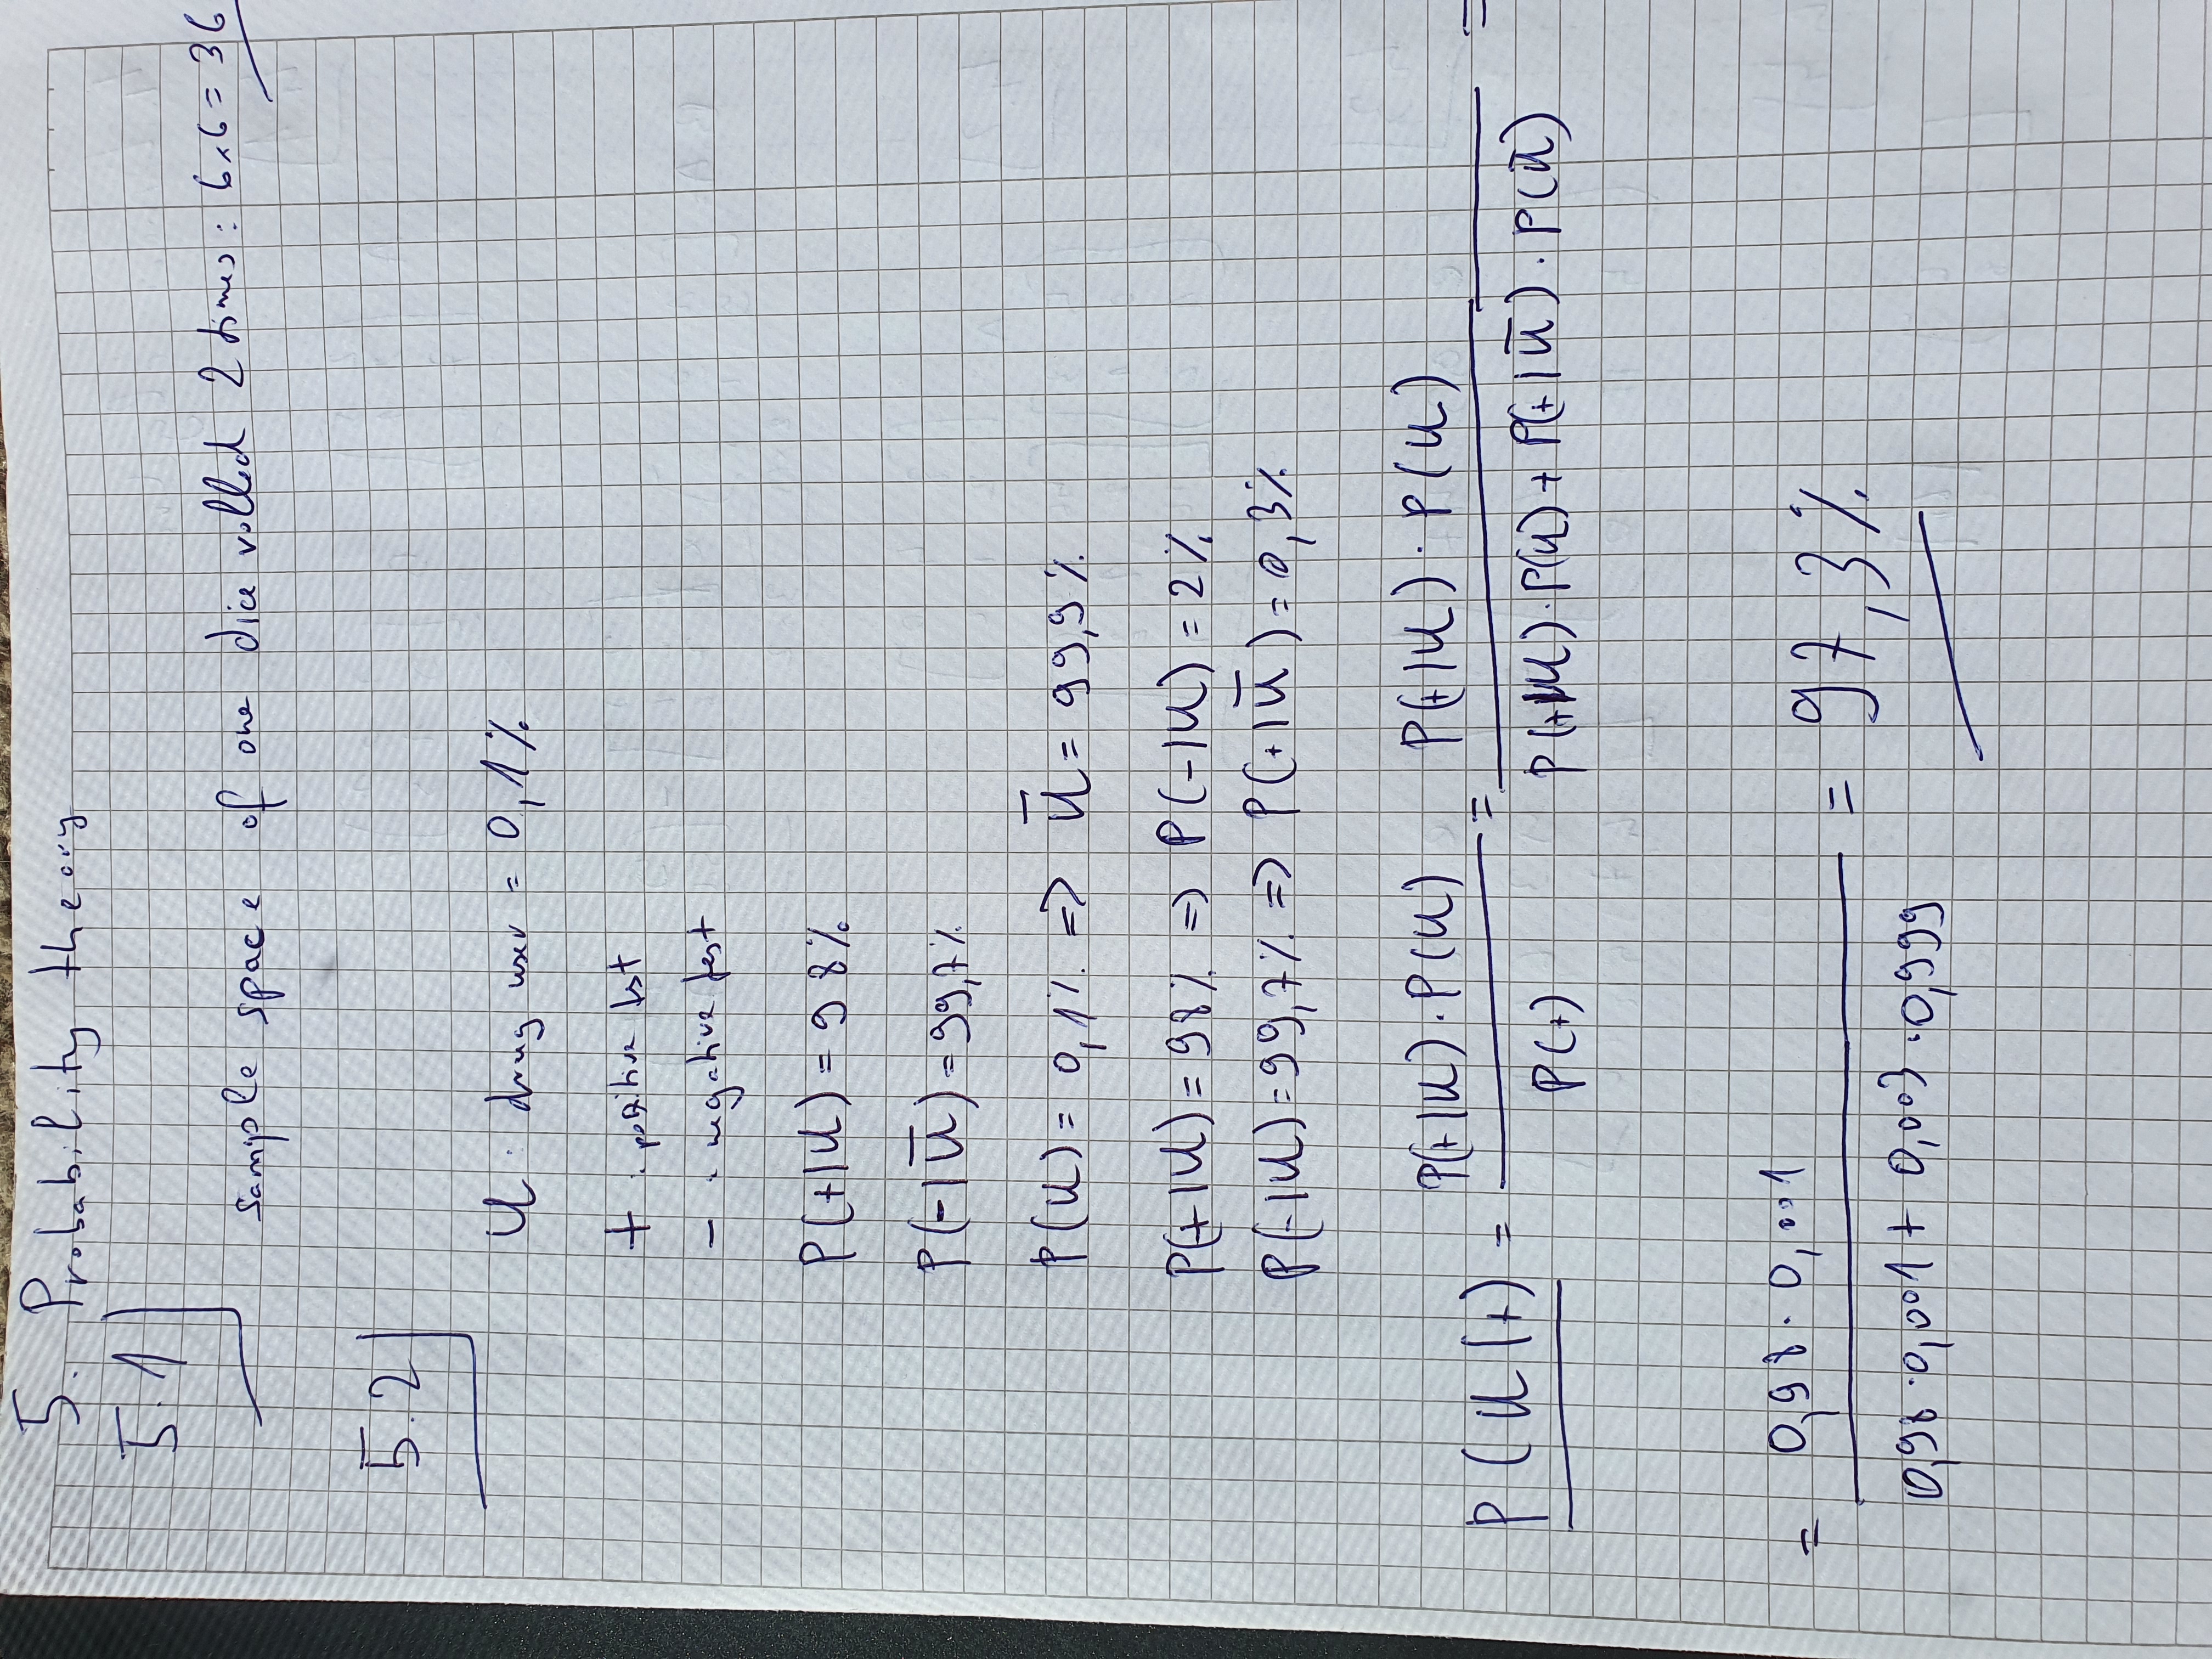 5. Probability theory
5.1
Sample space of one dice rolled 2 times: 6x6 = 36
5.2
U: drug user = 0,1%
+ : positive test
- : negative test
P(+|U) = 98%
P(-|Ū) = 99,7%
P(U) = 0,1% => Ū = 99,9%
P(+|U) = 98% => P(-|U) = 2%
P(-|U) = 99,7% => P(+|Ū) = 0,3%
P(U|+) = P(+|U) · P(U) / P(+) = P(+|U) · P(U) / P(+|U) · P(U) + P(+|Ū) · P(Ū) =
= 0,98 · 0,001 / 0,98 · 0,001 + 0,003 · 0,999 = 97,3%